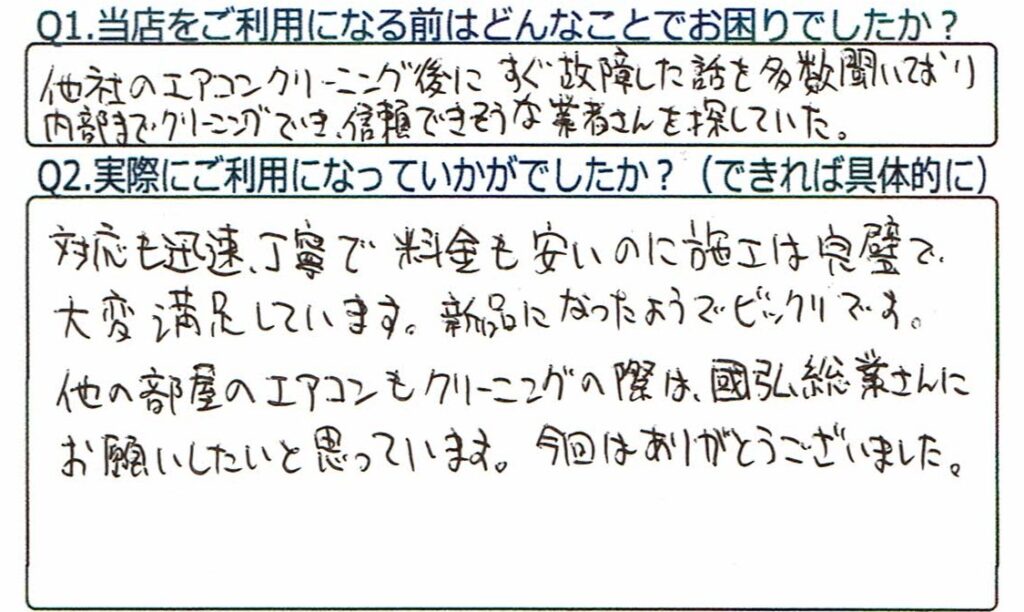 Q1.当店をご利用になる前はどんなことでお困りでしたか？
他社のエアコンクリーニング後に すぐ故障した話を多数聞いており
内部までクリーニングでき、信頼できそうな業者さんを探していた。
Q2.実際にご利用になっていかがでしたか？（できれば具体的に）
対応も迅速、丁寧で 料金も安いのに施工は完璧で、
大変満足しています。新品になったようでビックリです。
他の部屋のエアコンもクリーニングの際は、國弘総業さんに
お願いしたいと思っています。今回はありがとうございました。